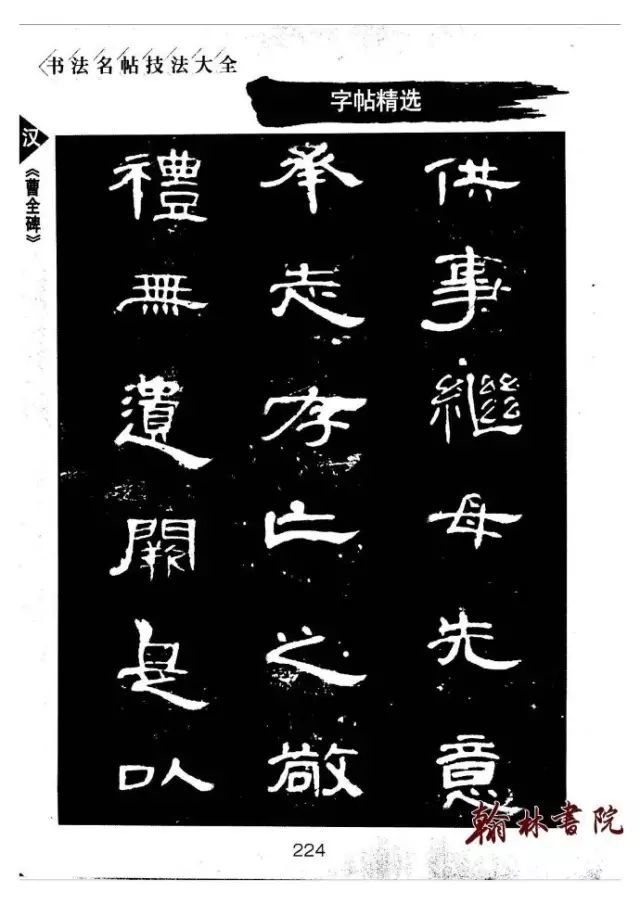 书法名帖技法大全
字帖精选
汉
《曹全碑》
供事繼母先意
承志存亡之敬
禮無遺闕是以
翰林書院
224